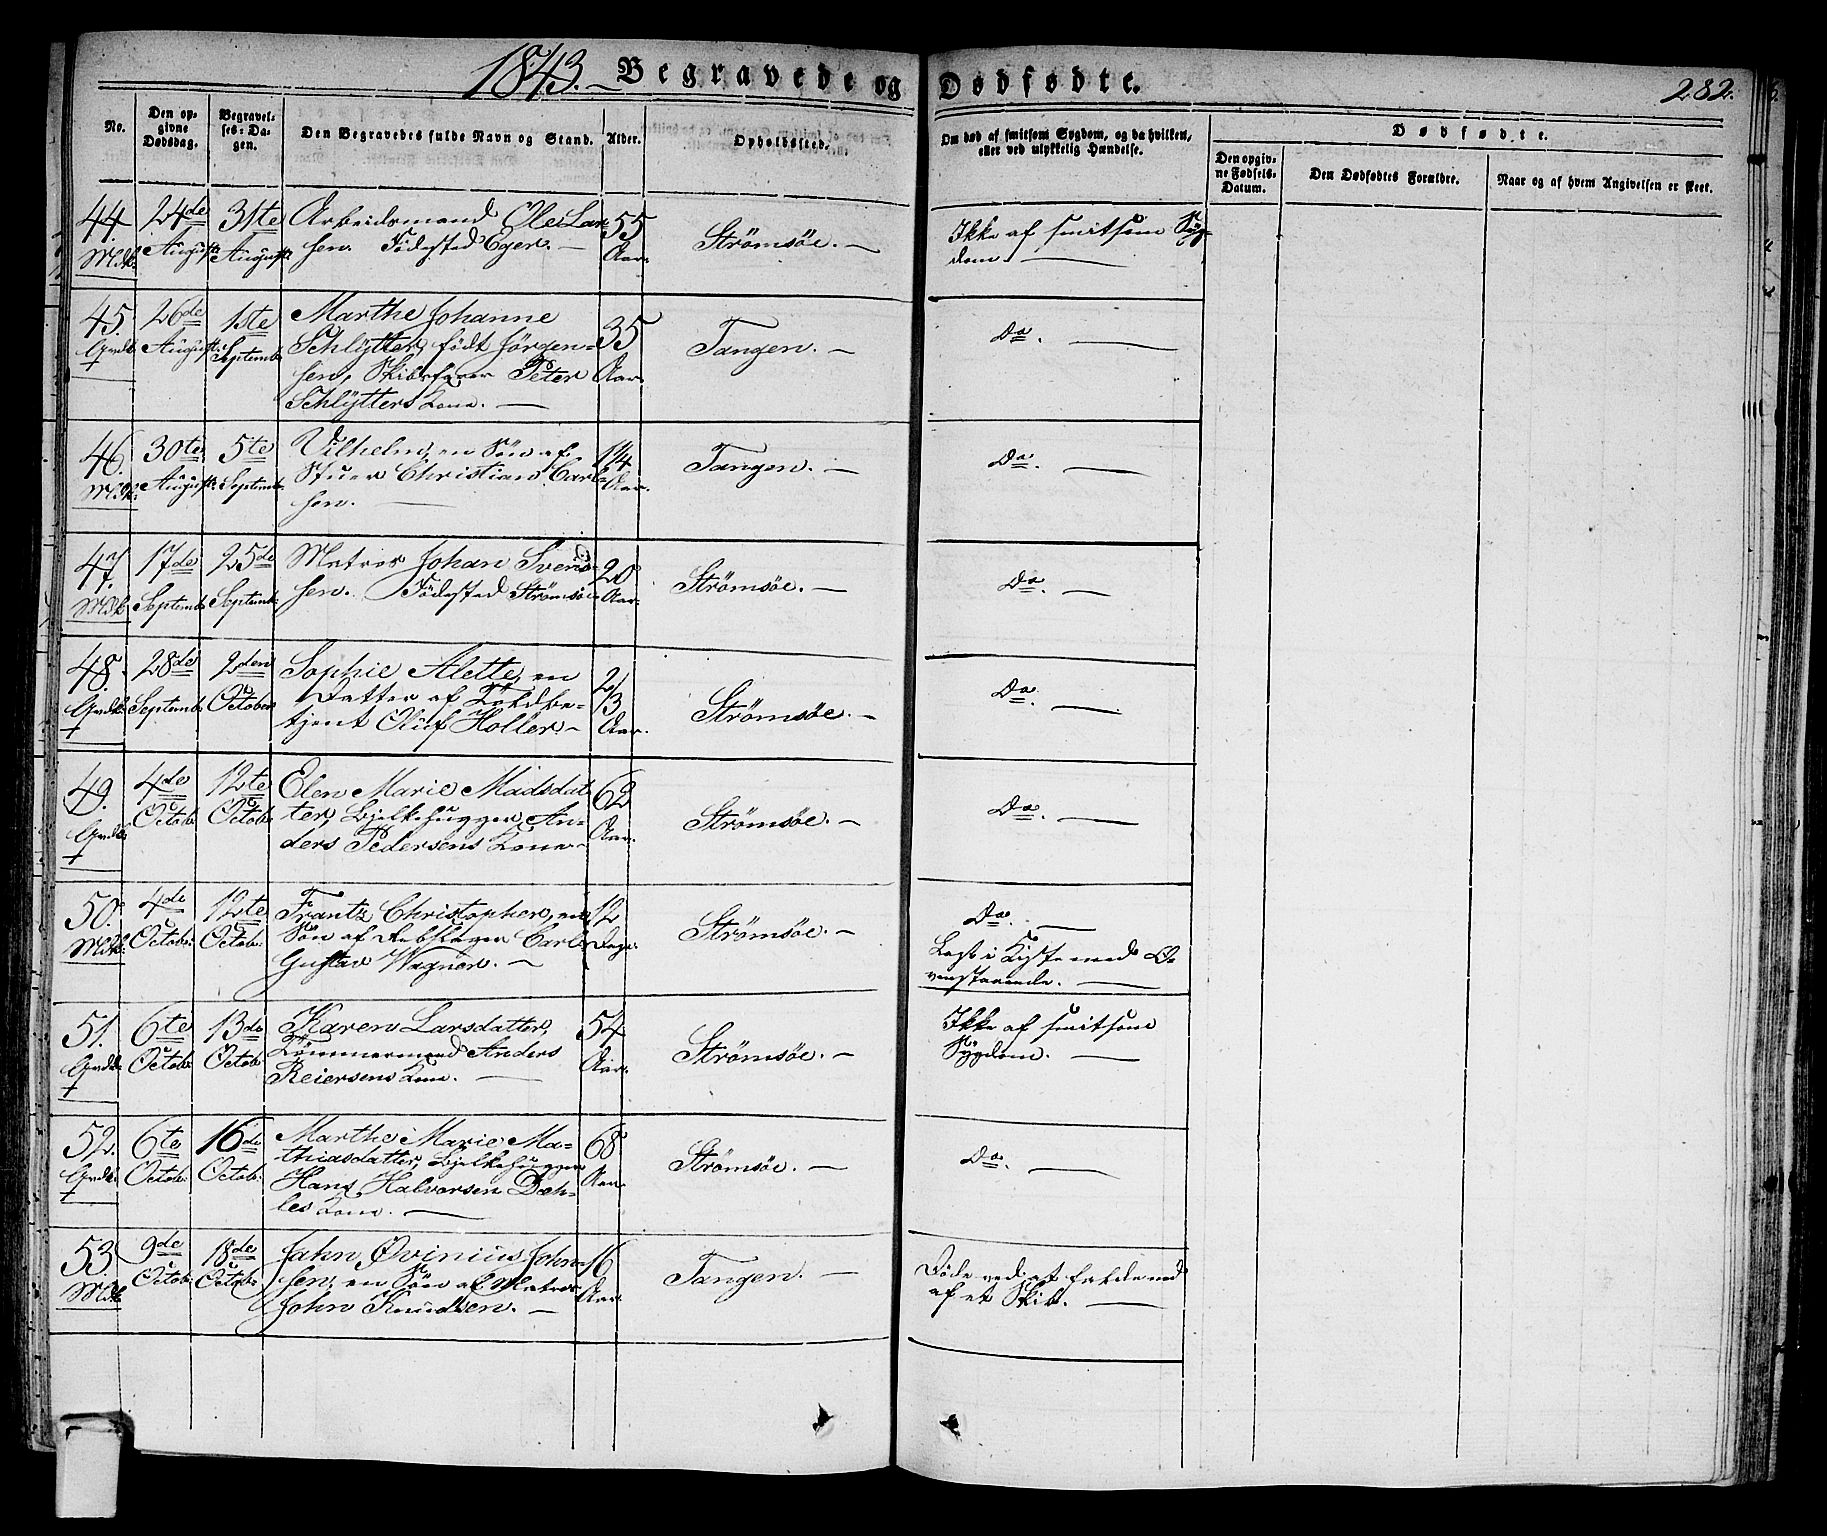 1843. – Begravede og Dødfødte. 282.
No.
Den opgivne Dødsdag.
Begravelses-Dagen.
Den Begravedes fulde Navn og Stand.
Alder.
Opholdssted.
Om død af smitsom Sygdom, og da hvilken, eller ved ulykkelig Hændelse.
Dødfødte.
Den opgivne Fødsels-Datum.
Den Dødfødtes Forældre.
Naar og af hvem Angivelsen er skeet.
44. Mdk: 24de August: 31te August:
Arbeidsmand Ole Lar-
sen. Födested Eger. –
55 Aar.
Strömsöe. –
Ikke af smitsom Syg-
dom. –
45. Qvdk: 26de August: 1ste Septemb:
Marthe Johanne
Schlytter, födt Jörgen-
sen, Skibsfører Peter
Schlytters Kone. –
35 Aar.
Tangen. –
Do. –
46. Mdk: 30te August: 5te Septemb:
Vilhelm, en Sön af
Stuer Christian Carl-
sen. –
14 Aar.
Tangen. –
Do. –
47. Mdk 17de Septemb: 25de Septemb:
Matros Johan Svend-
sen. Födested Strömsöe
20 Aar.
Strömsöe. –
Do. –
48. Qvdk: 28de Septemb: 2den October
Sophie Alette, en
Datter af Toldbe-
tjent Oluf Holler –
2/3 Aar.
Strömsöe. –
Do. –
49. Qvdk: 4de Octob: 12te Octob:
Elen Marie Madsdat-
ter, Bjelkehugger An-
ders Pedersens Kone –
62 Aar.
Strömsöe. –
Do. –
50. Mdk: 4de Octob: 12te Octob:
Frantz Christopher, en
Sön af Rebslager Carl
Gustav Wagner. –
12 Dage.
Strömsöe. –
Do. –
Lagt i Kiste med O-
venstaaende. –
51. Qvdk: 6te Octob: 13de Octob:
Karen Larsdatter,
Tömmermand Anders
Reiersens Kone. –
54 Aar.
Strömsöe. –
Ikke af smitsom
Sygdom. –
52. Qvdk: 6te Octob: 16de Octob:
Marthe Marie Ma-
thiasdatter, Bjelkehugger
Hans Halvorsen Dæh-
les Kone. –
68 Aar.
Strömsöe. –
Do. –
53. Mdk 9de Octob: 18de Octob:
Jahn Øvinius John-
sen, en Sön af Matros
John Knudsen. –
16 Aar.
Tangen. –
Döde ved at falde ned
af et Skib. –